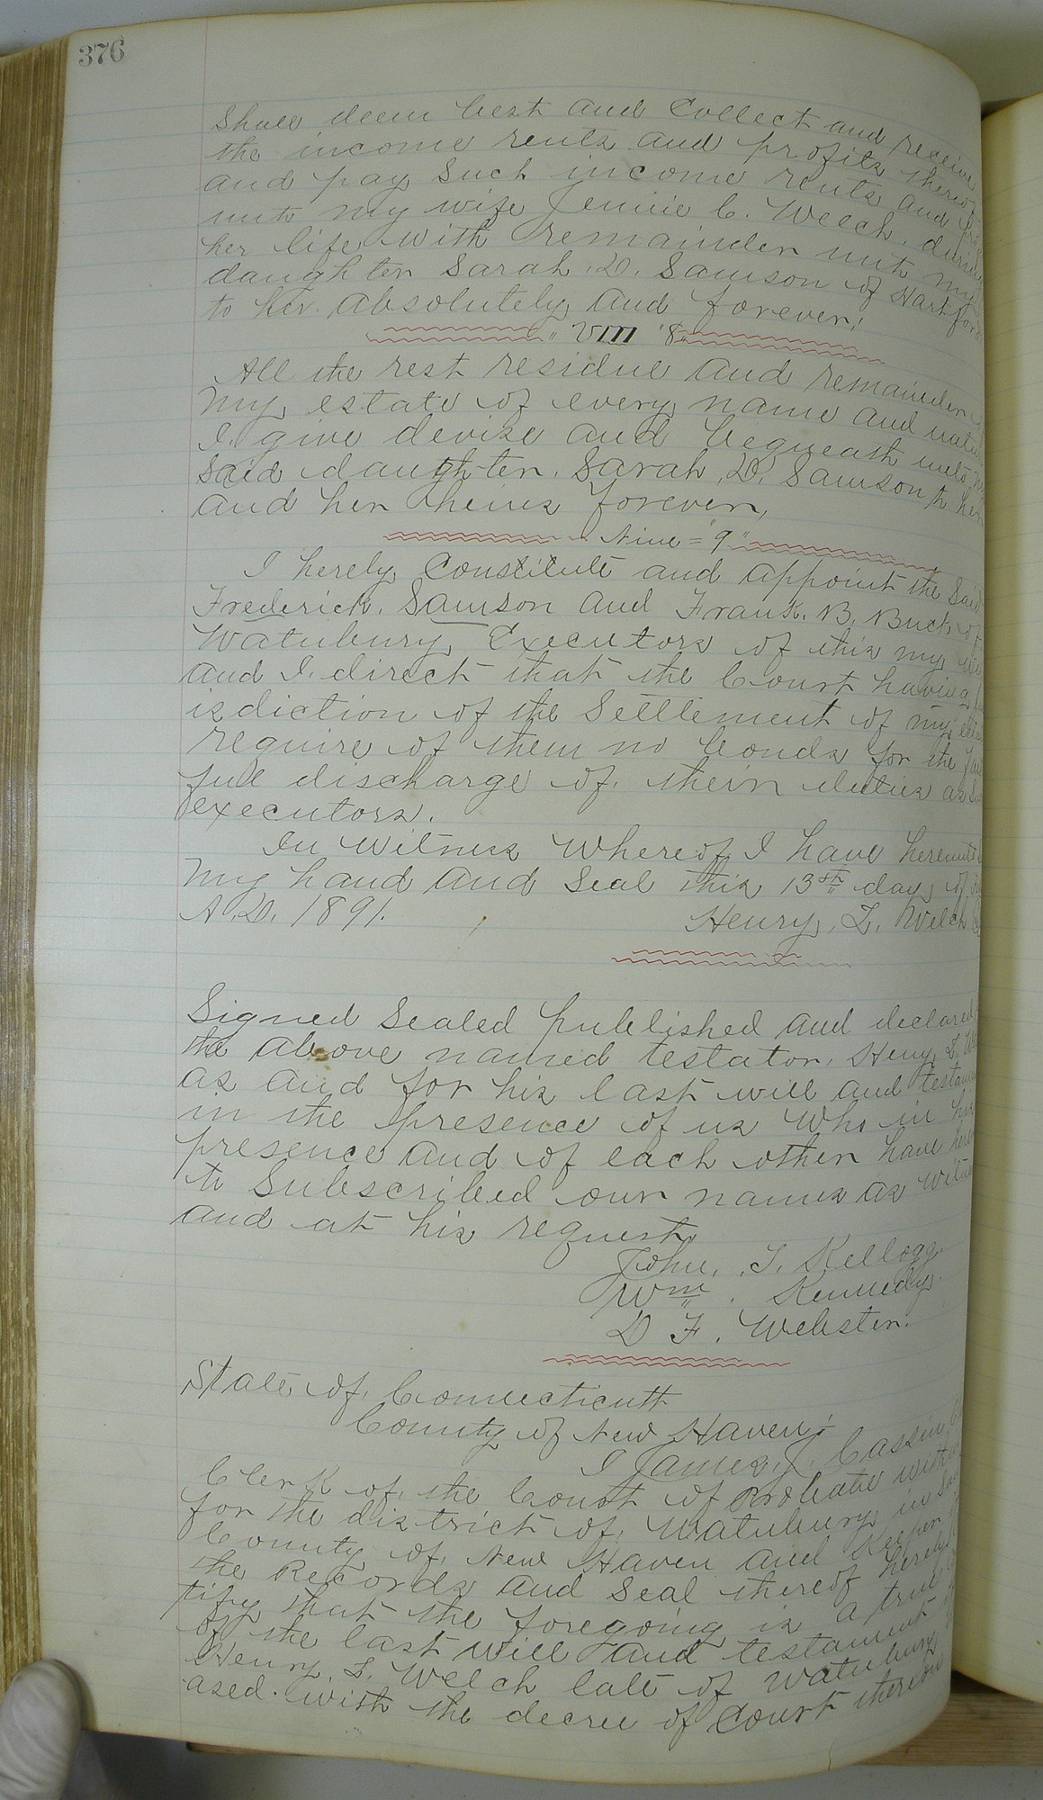 376
Shall deem best and Collect and receive
the income rents and profits thereof
and pay Such income rents and
unto my wife Jennie C. Welch. during
her life with remainder unto my
daughter Sarah. D. Samson of Hartford
to her absolutely and forever.
" VIII "8"
All the rest residue and remainder
my estate of every name and
I. give devise and bequeath unto
said daughter. Sarah. D. Samson to her
and her heirs forever,
Nine = "9"
I hereby Constitute and appoint the Said
Frederick. Samson and Frank. B. Buck of
Watubury Executors of this my
and I. direct that the Court having
isdiction of the Settlement of my
require of them no bonds for the
full discharge of their duties as
executors.
In Witness Whereof I have
my hand and Seal this 13th day of
A. D. 1891. Henry. L. Welch
Signed Sealed published and declared
the above named testator. Heny. L.
as and for his last will and
in the presence of us Who in his
presence and of each other have
to Subscribed our names as
and at his request,
John. I. Kellogg.
Wm. Kennedy.
D F. Webster.
State of. Connecticutt
County of New Haven;
I James. J. Cassin
Clerk of. the Court of Probate
for the district of. Watubury in
County of. New Haven and Keeper
the Records and Seal thereof hereby
tify that the foregoing is a true
of the last will and testament
Henry. L. Welch late of Watubury
ased. with the decree of Court thereon